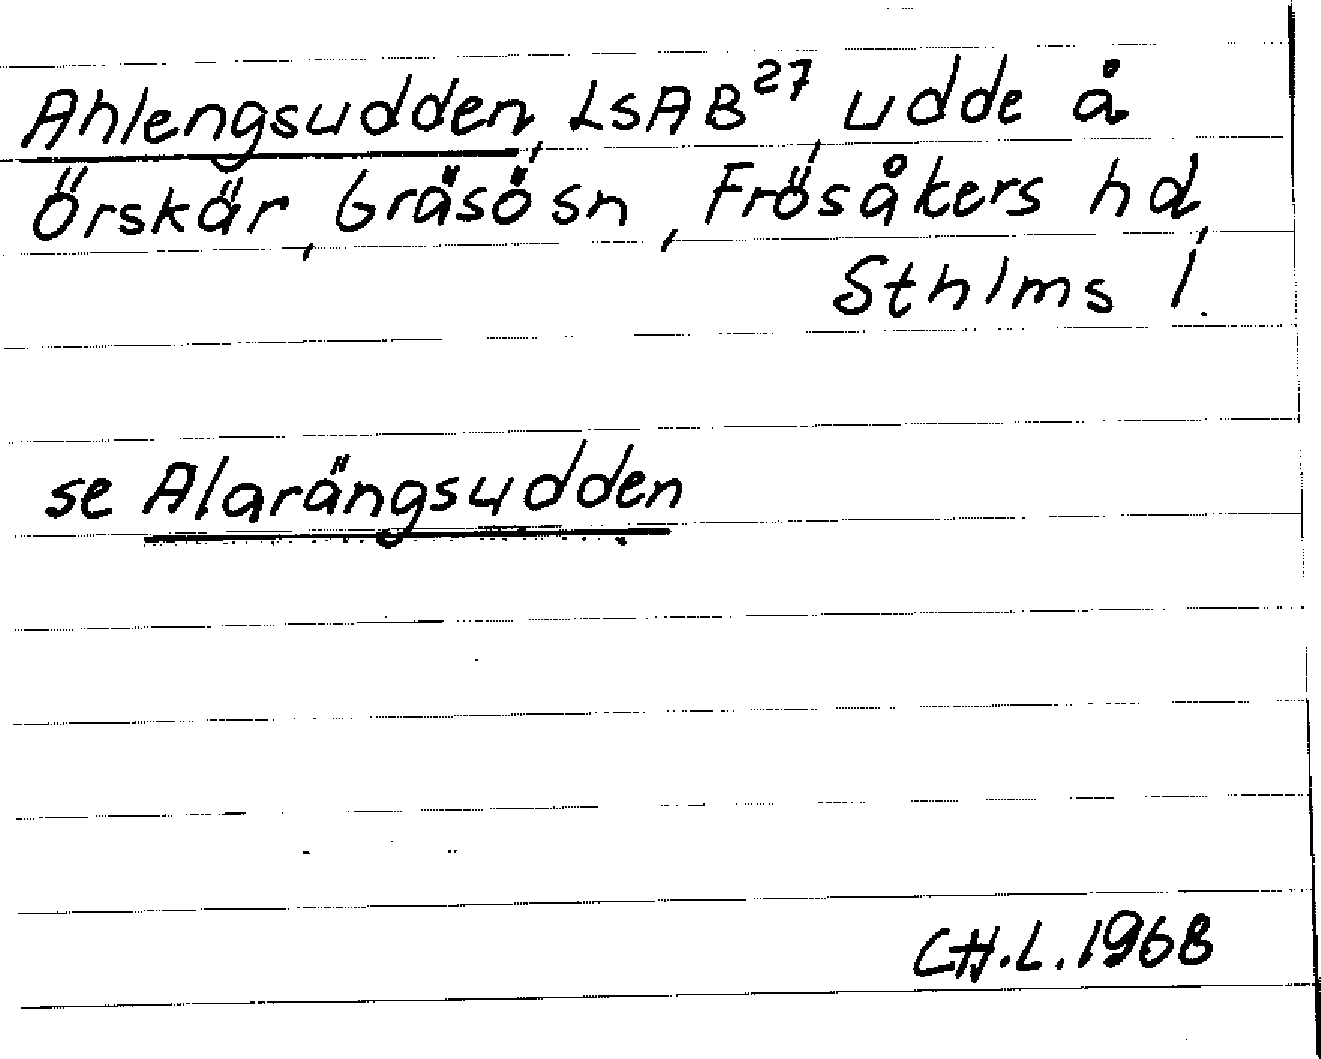 Ahlengsudden, LSAB27, udde å
Örskär, Gräsö sn, Frösåkers hd,
Sthlms l.
se Alarängsudden
C.H.L. 1968